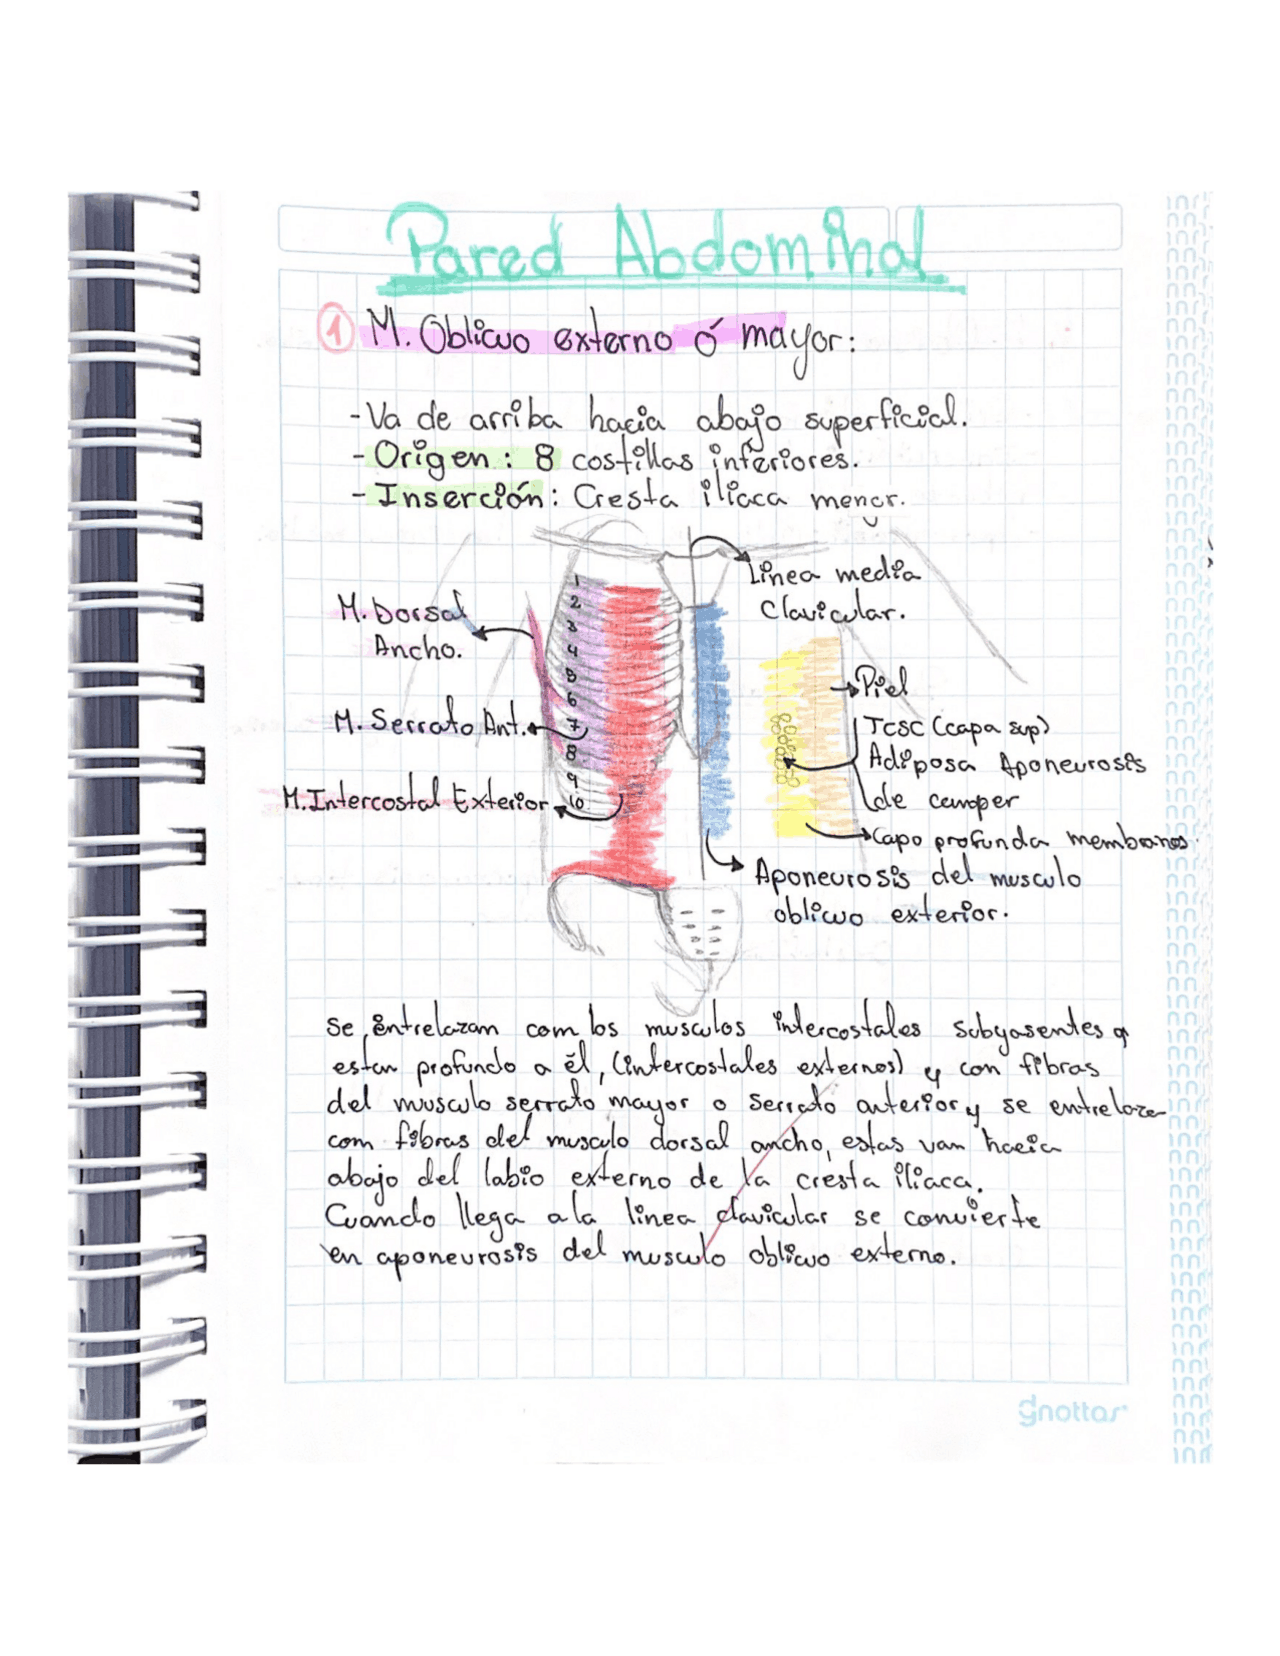 Pared Abdominal
① M. Oblicuo externo ó mayor:
- Va de arriba hacia abajo superficial.
- Origen: 8 costillas inferiores.
- Inserción: Cresta iliaca menor.
Linea media
Clavicular.
M. Dorsal
Ancho.
M. Serrato Ant.
M. Intercostal Exterior
1
2
3
4
5
6
7
8
9
10
Piel
Tcsc (capa sup)
Adiposa Aponeurosis
de camper
Capa profunda membranos.
Aponeurosis del musculo
oblicuo exterior.
Se entrelazam com los musculos intercostales subyasentes q
estan profundo a él, (intercostales externos) y con fibras
del musculo serrato mayor o serrato anterior y se entreloza
com fibras del musculo dorsal ancho, estas van hacia
abajo del labio externo de la cresta iliaca.
Cuando llega a la linea clavicular se convierte
en aponeurosis del musculo oblicuo externo.
gnottas